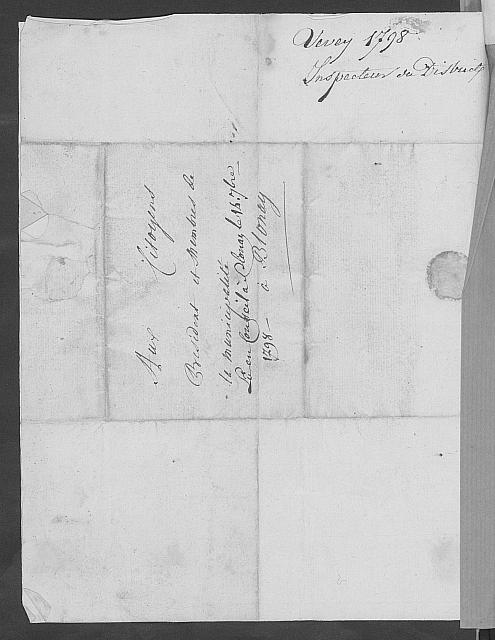 Vevey 1798
Inspecteur du District
Aux
Citoyens
President et Membres de
la municipalité
Lu en Conseil à Blonay le 16. 7bre
1798 —
à Blonay